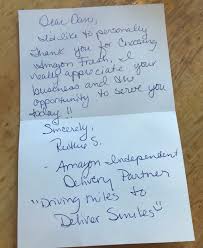 Dear Dave,
I'd like to personally
Thank you for Choosing
Amazon Fresh, I
really appreciate your
business and the
opportunity to serve you
today!!
Sincerely,
S.
- Amazon Independent
Delivery Partner
"Driving Miles to
Deliver Smiles"